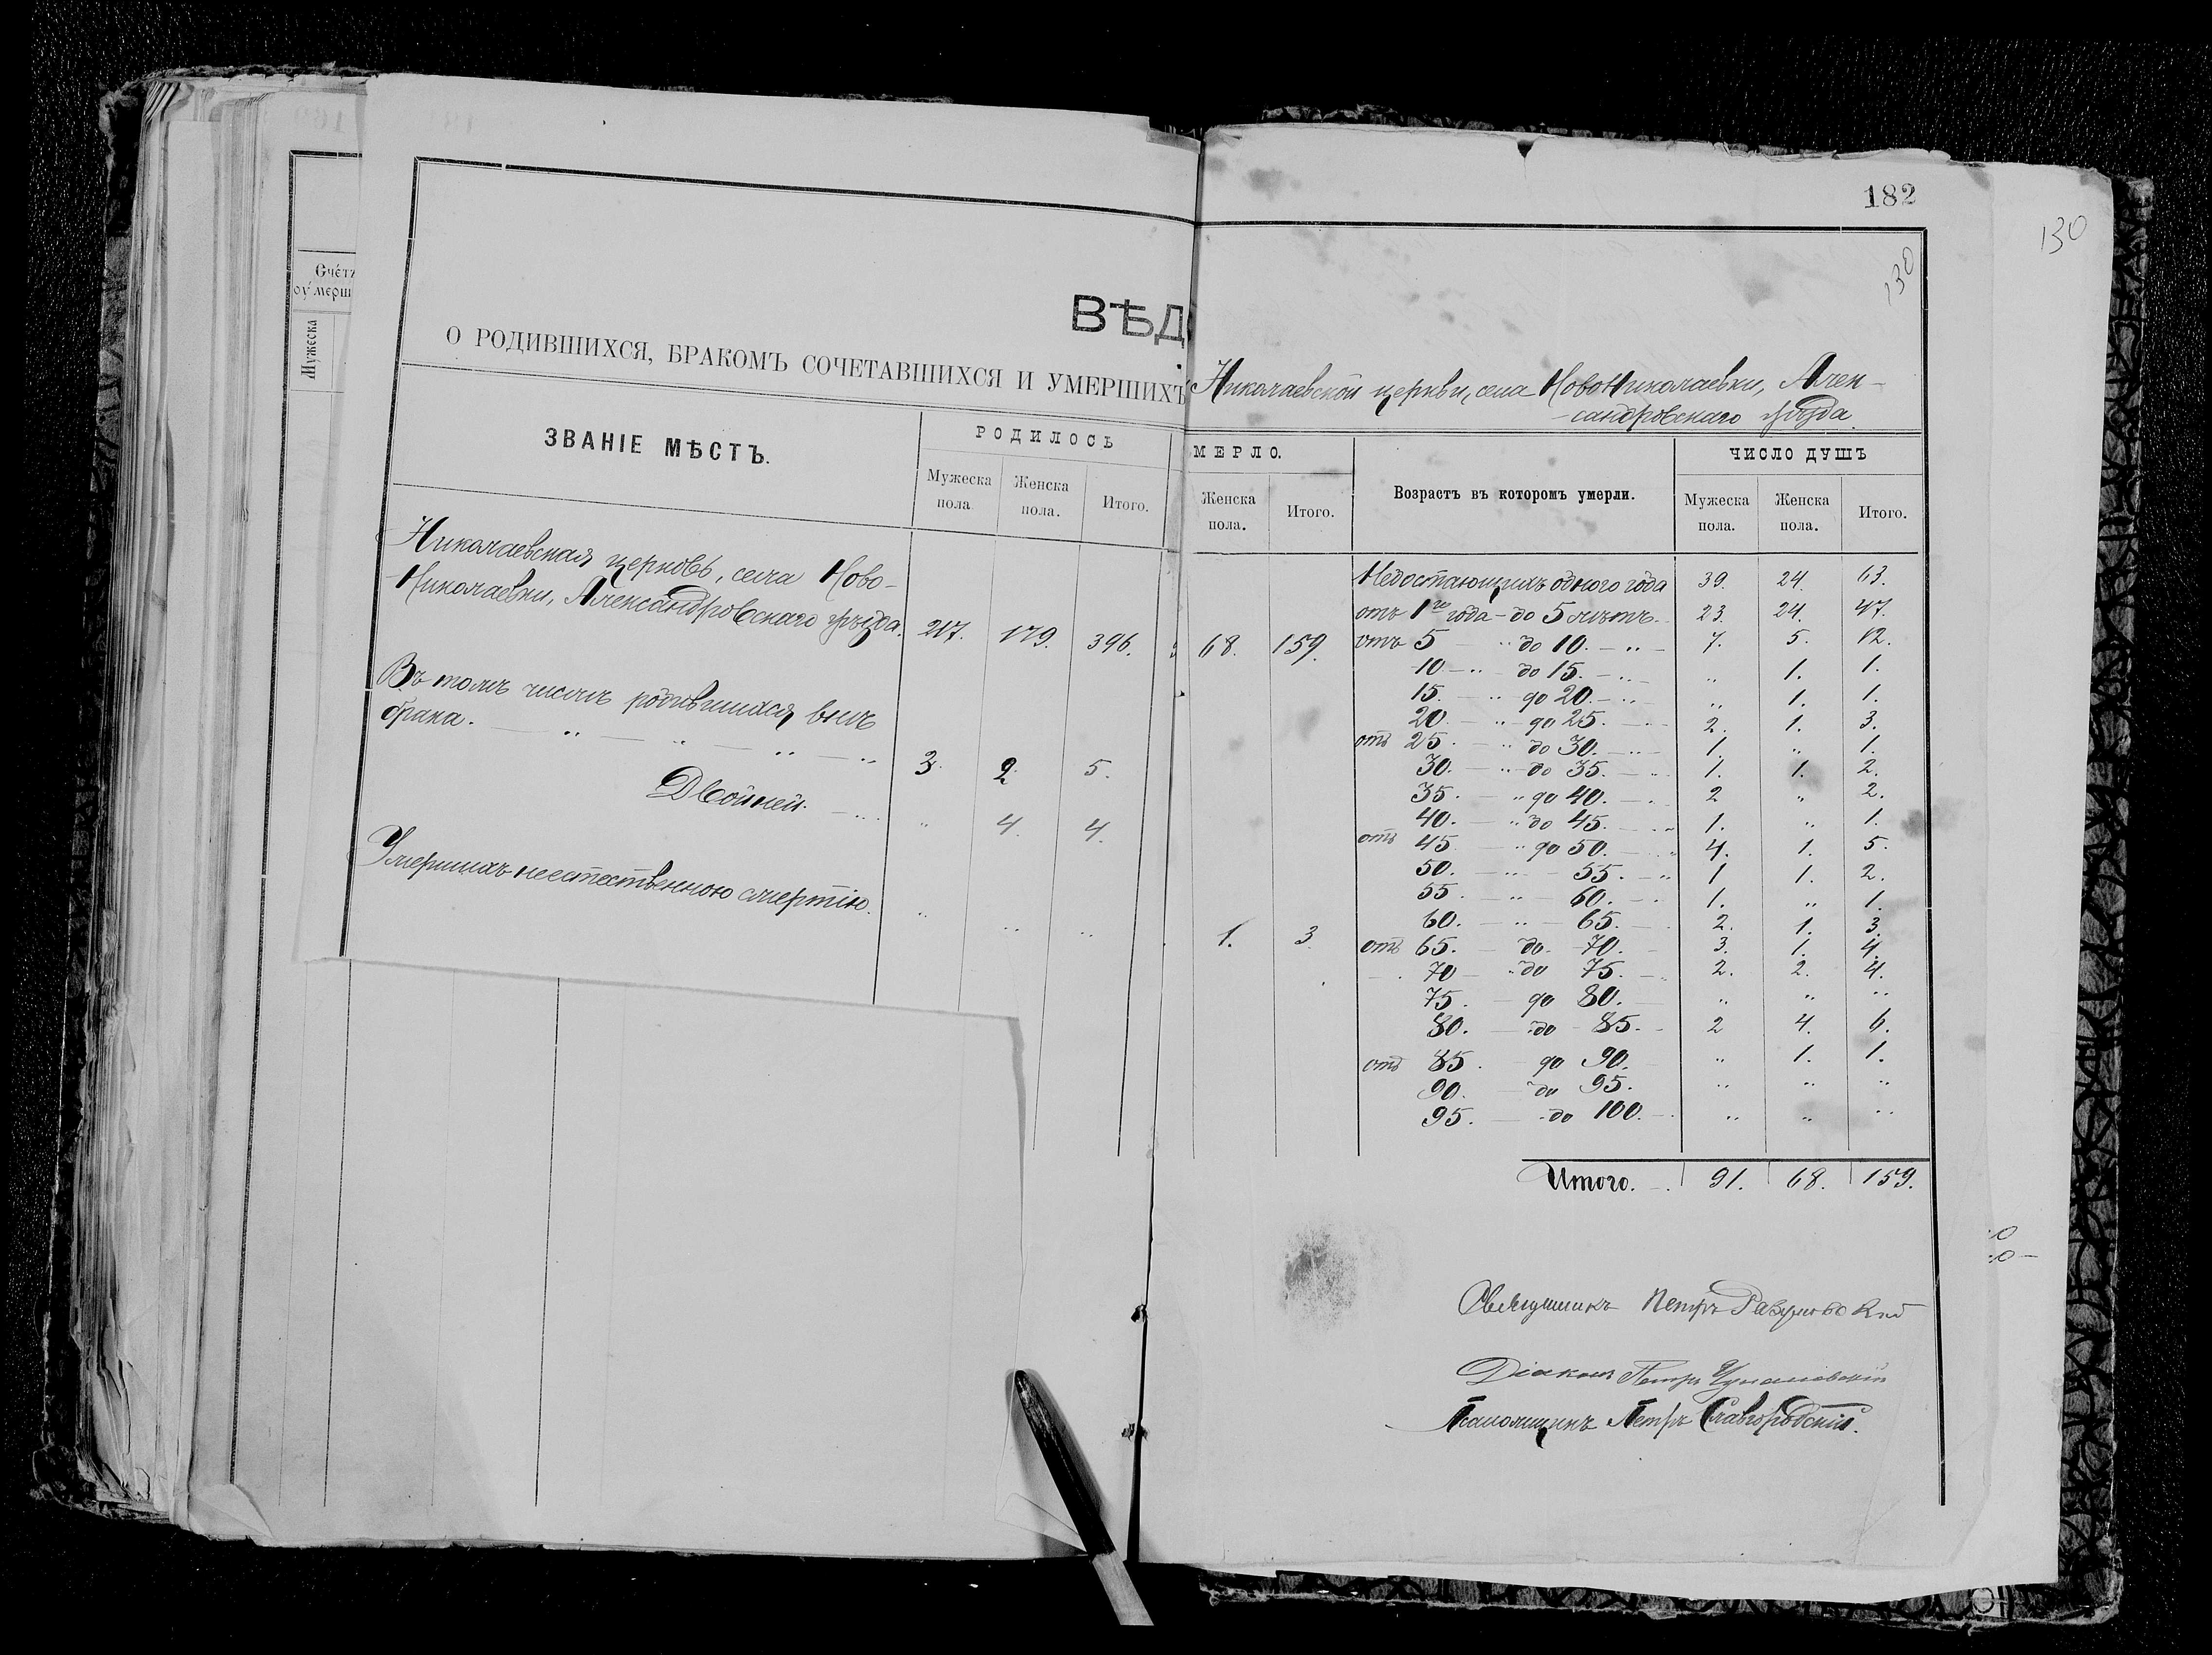 182
130
130
Счéтъ
оумерш
Мужеска
ВѢД
О РОДИВШИХСЯ, БРАКОМЪ СОЧЕТАВШИХСЯ И УМЕРШИХЪ
Николаевской церкви, села НовоНиколаевки, Алек-
-сандровскаго уѣзда.
ЗВАНІЕ МѢСТЪ.
РОДИЛОСЬ
Мужеска пола.
Женска пола.
Итого.
МЕРЛО.
Женска пола.
Итого.
Возрастъ въ которомъ умерли.
ЧИСЛО ДУШЪ
Мужеска пола.
Женска пола.
Итого.
Николаевская церковь, села Ново-
Николаевки, Александровскаго уѣзда. 217. 179. 396. 68. 159.
Въ томъ числѣ родившихся внѣ
брака. — „ — „ — „ — „ 3. 2. 5.
Двойней. — „ „ 4. 4.
Умершихъ неестественною смертію. „ „ „ 1. 3.
Недостающихъ одного года 39. 24. 63.
отъ 1го года - до 5 лѣтъ. 23. 24. 47.
отъ 5 „ до 10. — „ — 7. 5. 12.
10 — „ до 15. — „ „ 1. 1.
15. — „ до 20. — „ „ 1. 1.
20. — „ до 25. — „ 2. 1. 3.
отъ 25. — „ до 30. — „ 1. „ 1.
30. — „ до 35. — „ 1. 1. 2.
35. — „ до 40. — „ 2 „ 2.
40. — „ до 45. — „ 1. „ 1.
отъ 45 — „ до 50. — „ 4. 1. 5.
50. — „ — 55. — „ 1 1. 2.
55. — „ — 60. — 1. „ 1.
60. — „ — 65. — 2. 1. 3.
отъ 65. — до 70. — 3. 1. 4.
70 — „ до 75. — 2. 2. 4.
75. — до 80. — „ „ „
80. — до 85. — 2 4. 6.
отъ 85. — до 90. — „ 1. 1.
90. — до 95. „ „ „
95. — до 100. — „ „ „
Итого. — 91. 68. 159.
Священникъ Петръ
Діаконъ Петръ
Псаломщикъ Петръ Славгородскій.